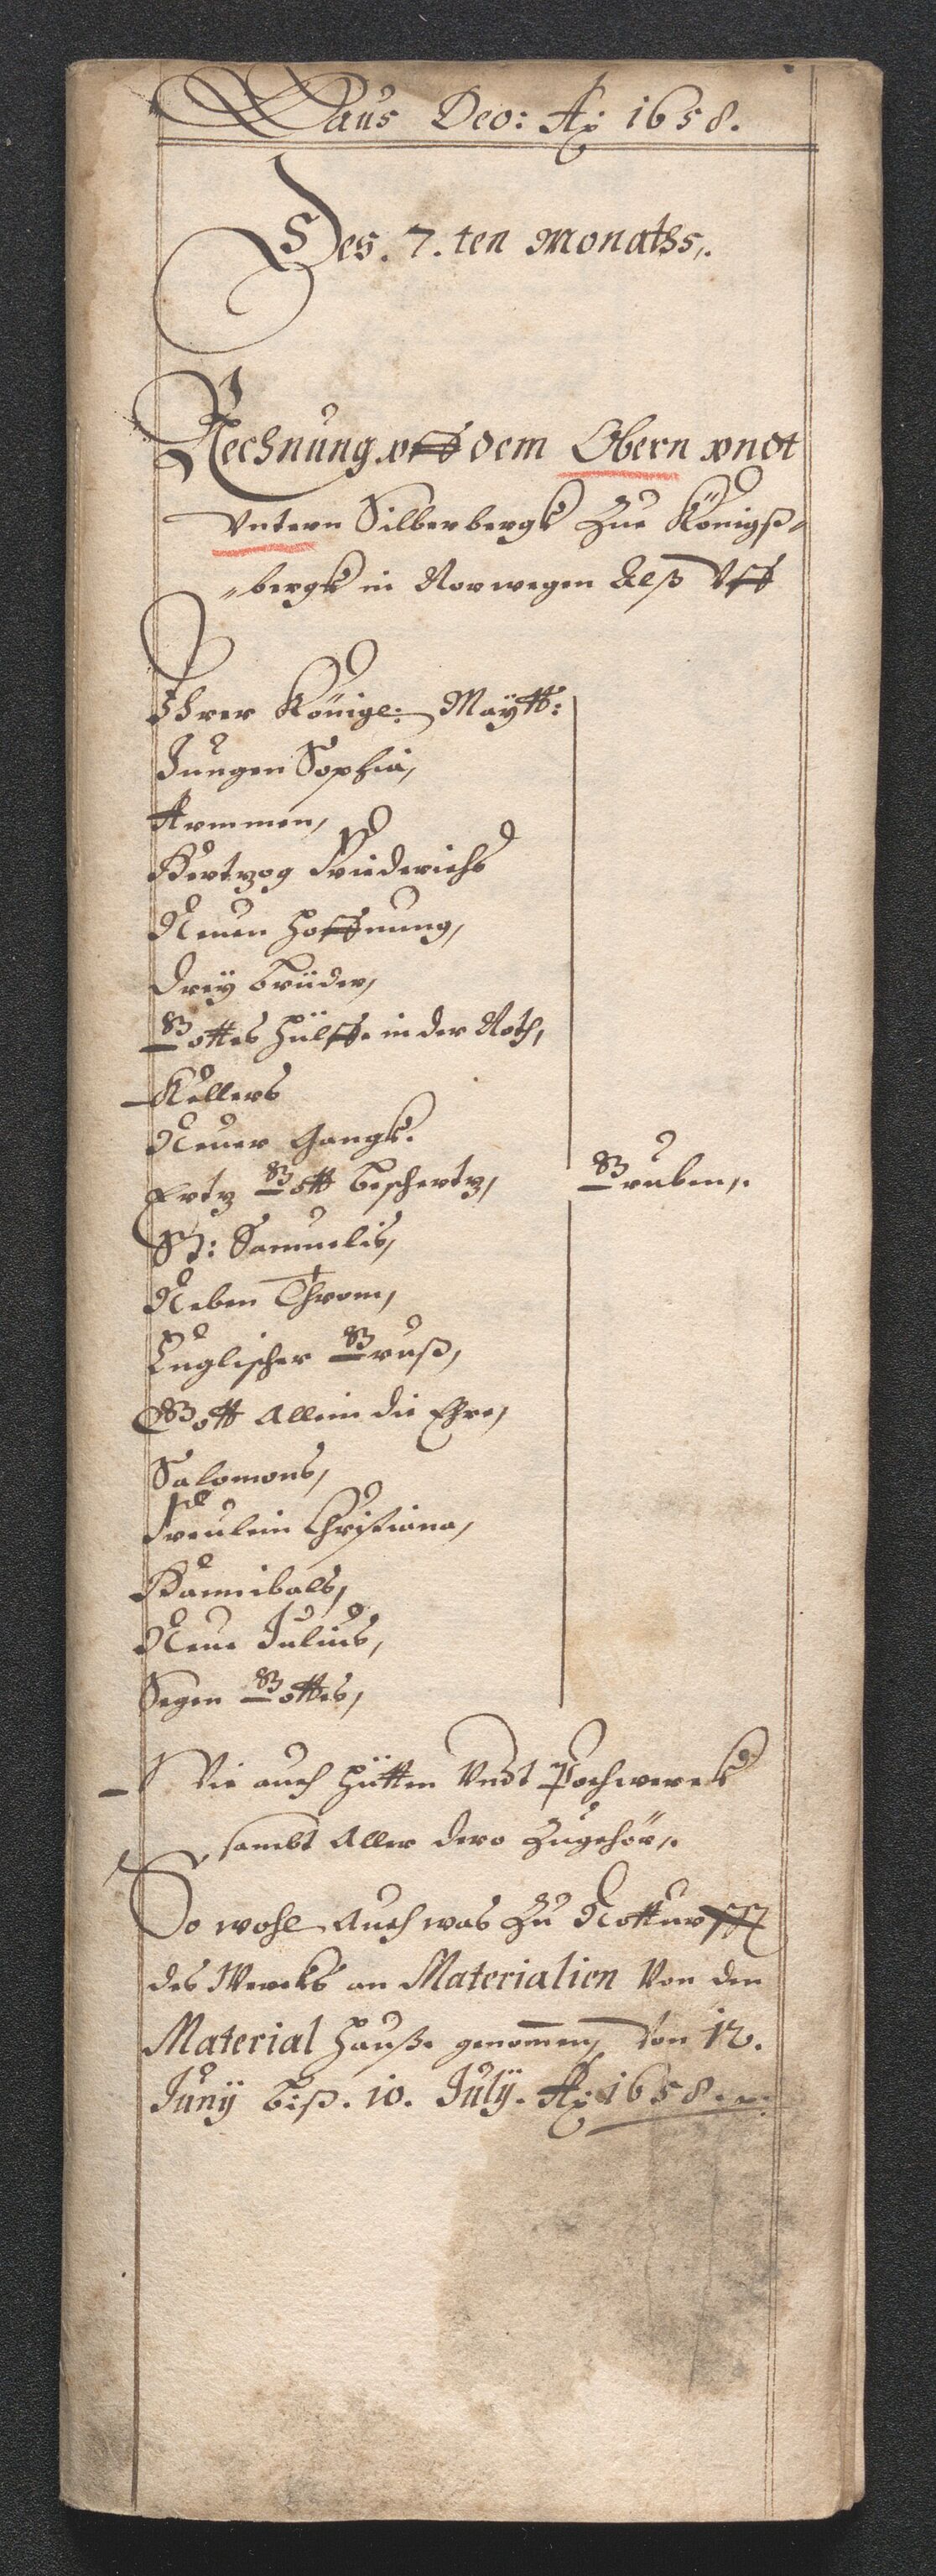 Laus Deo: Aō 1658.
Des. 7.ten Monaths,.
Rechnung vff dem Obern vndt
Vntern Silberbergk Zue Königß„
„bergk in Norwegen Alß Vff
Ihrer Königl: Maÿtt:
Jungen Sophia,
Armmen,
Hertzog Friederichs
Neuen Hoffnung,
Dreÿ Brüder,
Gottes Hülffe in der Noth,
Kellers
Neuer Gangk.
Ertz Gott beschertz,
Gruben,.
St: Samuelis,
Neben Throm,
Englischer Gruß,
Gott Allein die Ehre,
Salomons,
Freulein Christiana,
Hannibals,
Neue Julius,
Segen Gottes,
Wie auch Hütten Vndt Pochwerck
sambt Aller dero Zugehör,.
So wohl Auch was Zu Notturfft
des Wercks an Materialien Von den
Material Hauße genom̄en, Von 12.
Junÿ biß. 10. Julÿ. Aō 1658.